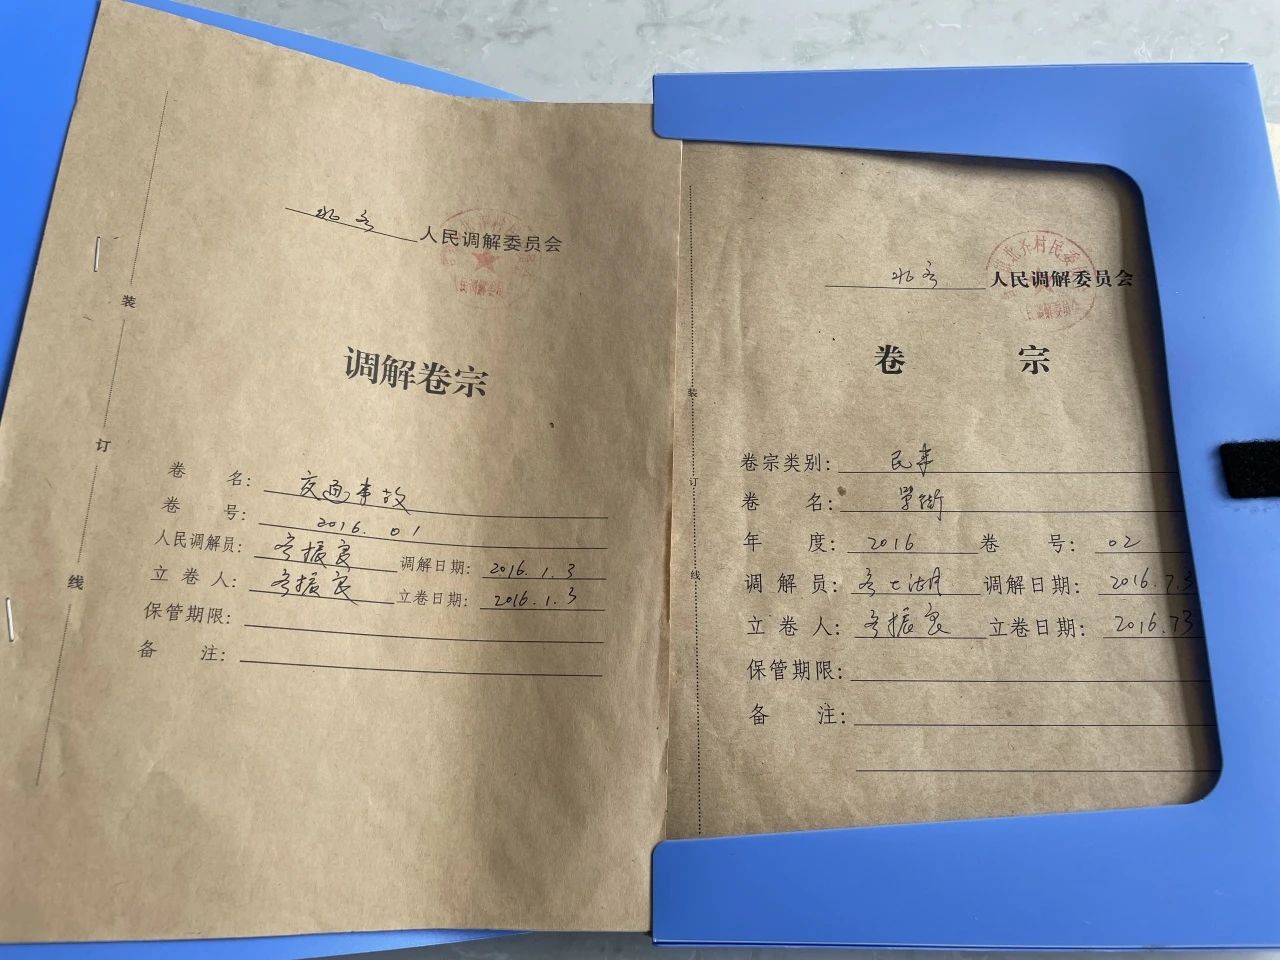 北齐 人民调解委员会
调解卷宗
卷 名: 交通事故
卷 号: 2016. 01
人民调解员: 齐振良 调解日期: 2016.1.3
立卷人: 齐振良 立卷日期: 2016.1.3
保管期限:
备 注:
装
订
线
北齐 人民调解委员会
北齐村民委
调解委员会
卷 宗
卷宗类别: 民事
卷 名:
年 度: 2016 卷 号: 02
调 解 员: 齐 调解日期: 2016.7.3
立 卷 人: 齐振良 立卷日期: 2016.7.3
保管期限:
备 注:
装
订
线